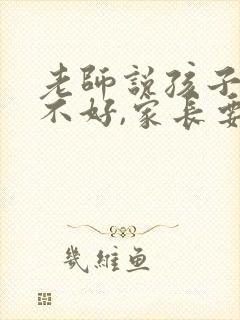 老師説孩子
不好,家長要
幾維魚